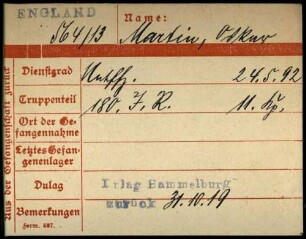 ENGLAND
Name:
564/13 Martin, Oskar
Dienstgrad Untffz. 24.5.92
Truppenteil 180. J. R. 11. Kp.
Ort der Gefangennahme
Letztes Gefangenenlager
Dulag Dulag Hammelburg
Bemerkungen zurück 31.10.19
Form. 687.
Aus der Gefangenschaft zurück